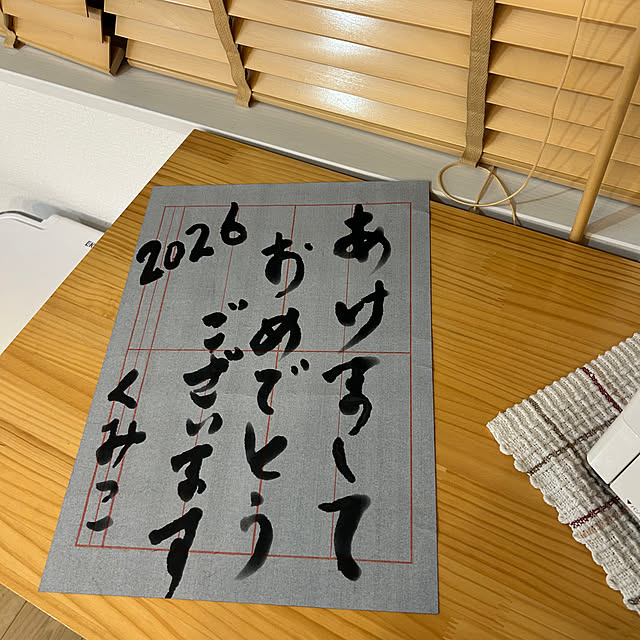 あけまして
おめでとう
ございます
2026
くみこ